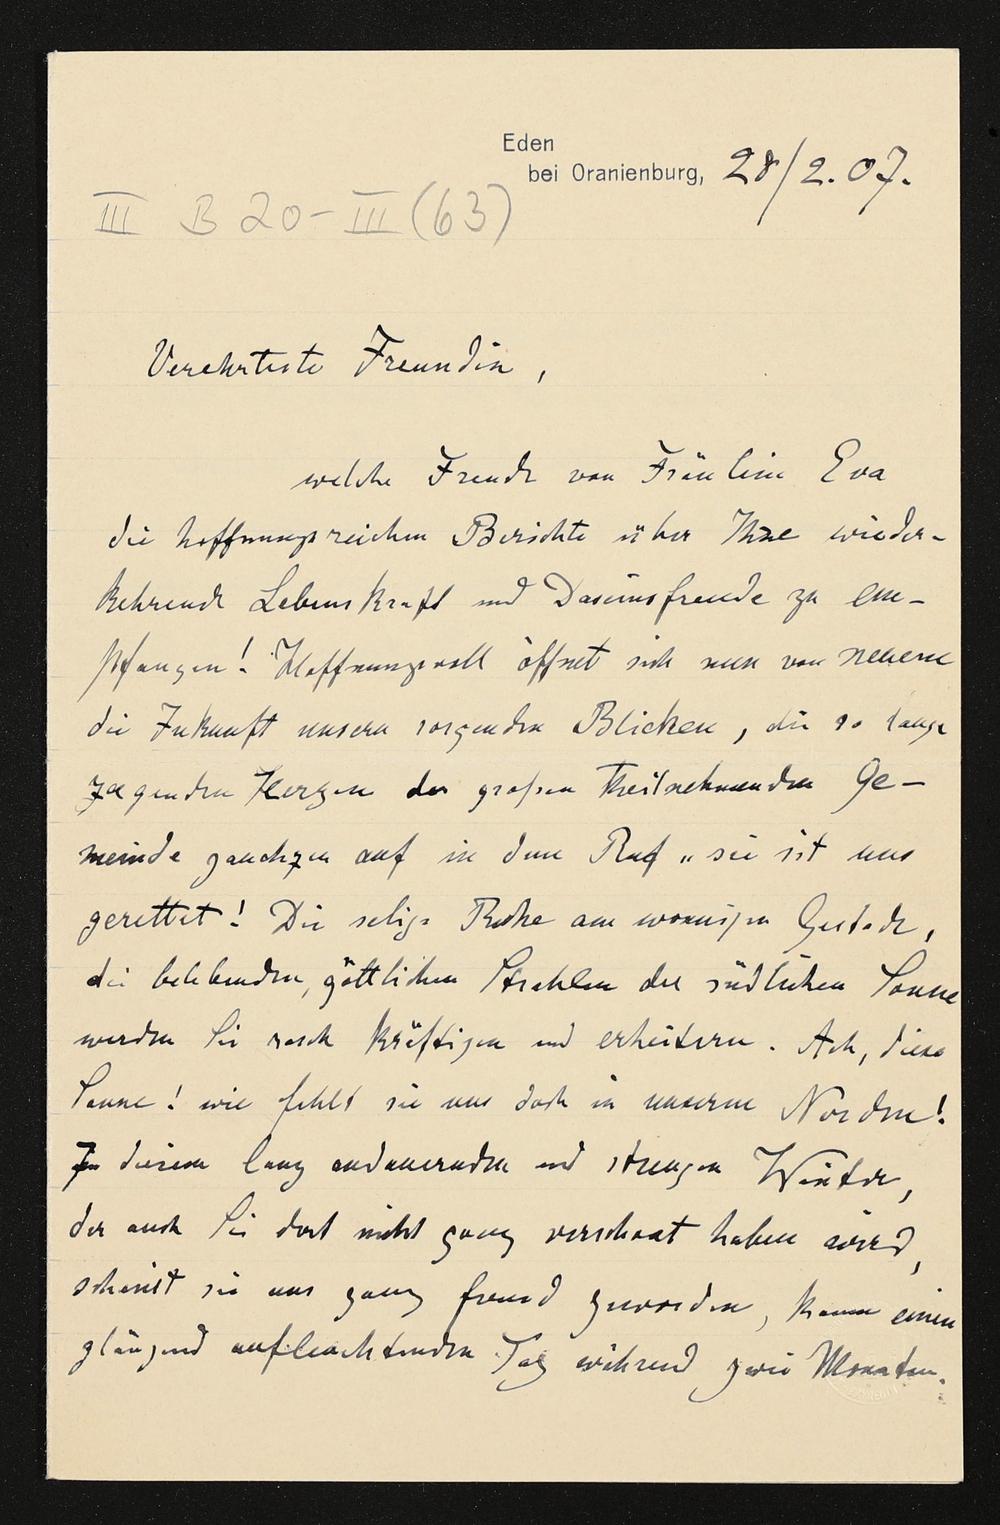 Eden
bei Oranienburg, 28/2.07.
III B 20-III (63)
Verehrteste Freundin,
welche Freude von Fräulein Eva
die hoffnungsreichen Berichte über Ihre wieder-
kehrende Lebenskraft und Daseinsfreude zu em-
pfangen! Hoffnungsvoll öffnet sich nun von neuem
die Zukunft unsern sorgenden Blicken, die so lange
zagenden Herzen der großen theilnehmenden Ge-
meinde jauchzen auf in dem Ruf „sie ist uns
gerettet! Die selige Ruhe am wonnigen Gestade,
die belebenden, göttlichen Strahlen der südlichen Sonne
werden Sie rasch kräftigen und erheitern. Ach, diese
Sonne! wie fehlt sie uns doch in unserm Norden!
In diesem lang andauernden und strengen Winter,
der auch Sie dort nicht ganz verschont haben wird,
scheint sie uns ganz fremd geworden, kaum einen
glänzend aufleuchtenden Tag während zwei Monaten.